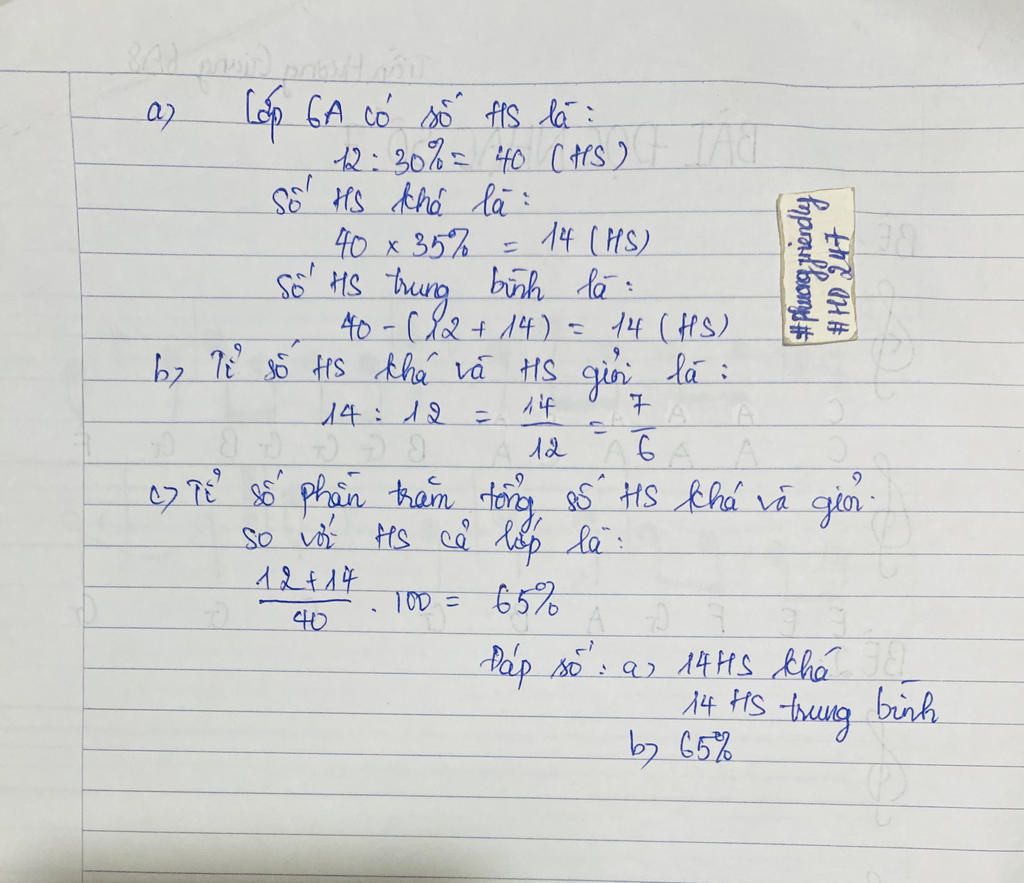 a) Lớp 6A có số HS là:
12 : 30% = 40 (HS)
Số HS khá là:
40 x 35% = 14 (HS)
Số HS trung bình là:
40 - (12 + 14) = 14 (HS)
b) Tỉ số HS khá và HS giỏi là:
14 : 12 = 14/12 = 7/6
c) Tỉ số phần trăm tổng số HS khá và giỏi
so với HS cả lớp là:
(12+14)/40 . 100 = 65%
Đáp số: a) 14 HS khá
14 HS trung bình
b) 65%
# HD 247